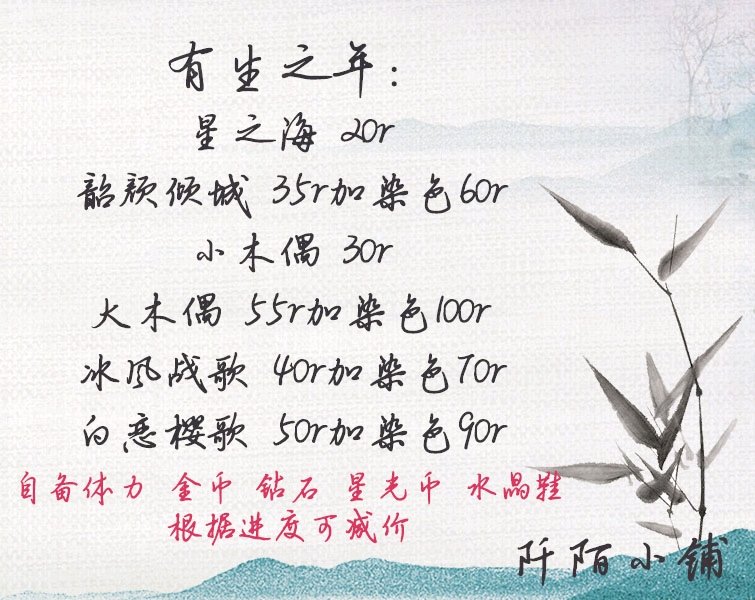 有生之年：
星之海 20r
韶颜倾城 35r加染色60r
小木偶 30r
大木偶 55r加染色100r
冰风战歌 40r加染色70r
白恋樱歌 50r加染色90r
自备体力 金币 钻石 星光币 水晶鞋
根据进度可减价
阡陌小铺